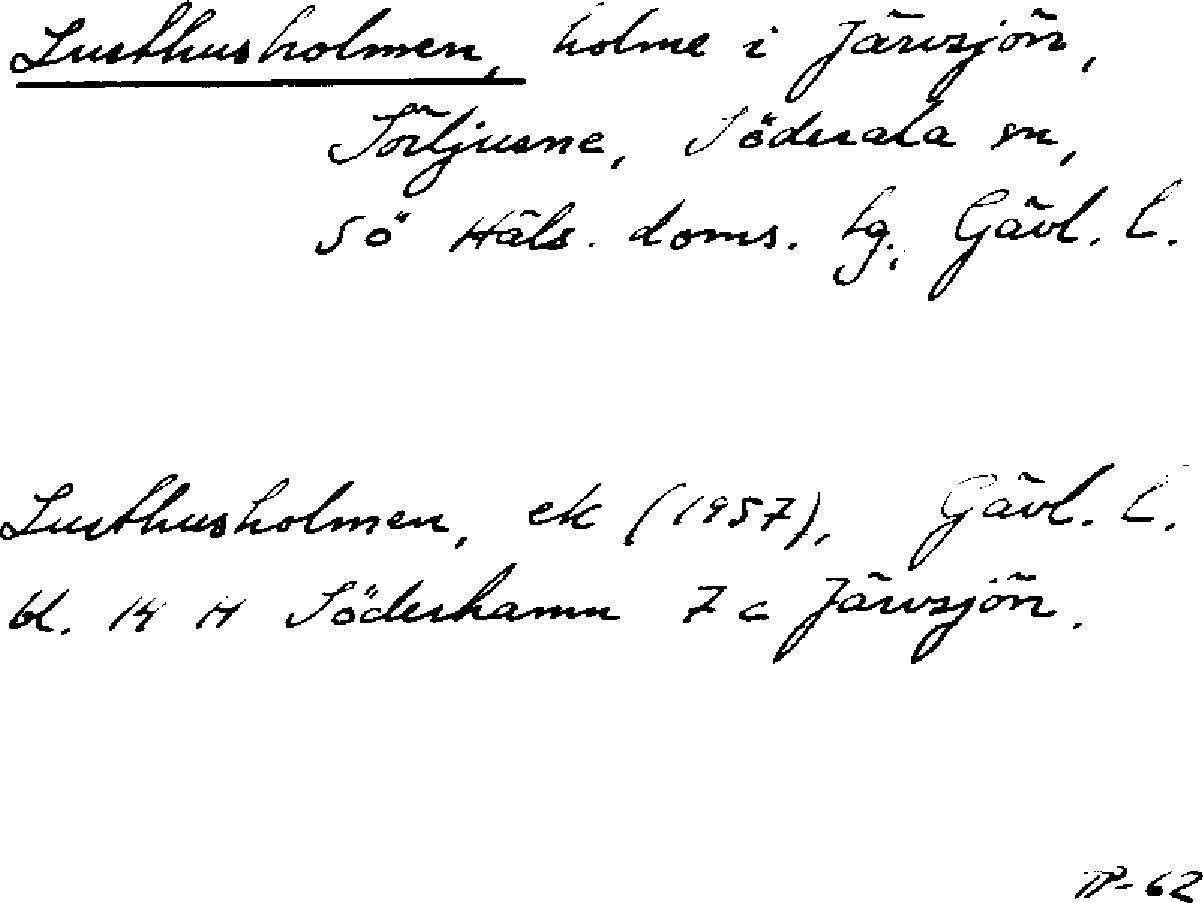 Lusthusholmen, holme i Järvsjön,
Sörljusne, Söderala sn,
Sö Häls. doms. lg., Gävl. l.
Lusthusholmen, ek (1957), Gävl. l.
bl. 14 H Söderhamn 7 c Järvsjön.
TP-62